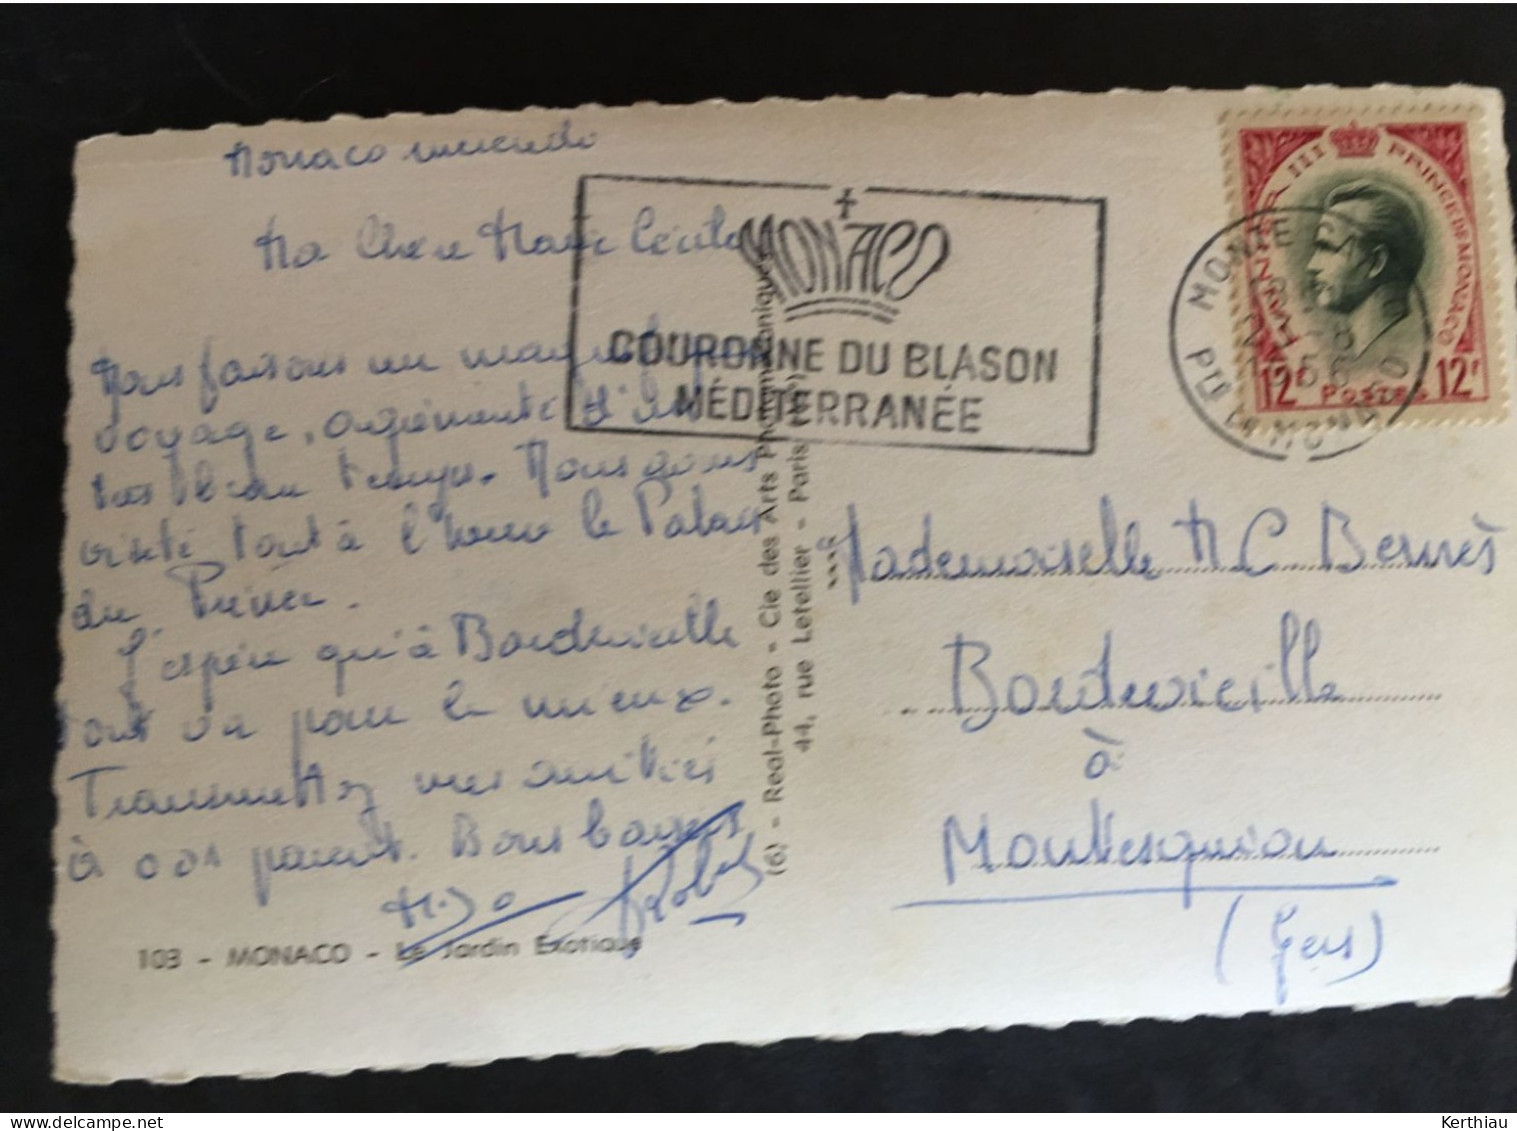 Monaco mercredi
Ma Chère Marie Cécile
Nous faisons un magnifique
voyage, agrémenté d'un
très beau temps. Nous avons
visité tout à l'heure le Palais
du Prince.
J'espère qu'à Bordevieille
tout va pour le mieux.
Transmettez mes amitiés
à vos parents. Bons baisers
103 - MONACO - Le Jardin Exotique
(6) - Real-Photo - Cie des Arts Photomécaniques
44, rue Letellier - Paris (15e)
MONACO
COURONNE DU BLASON
MÉDITERRANÉE
MONTE-CARLO
Pté DE MONACO
RAINIER III PRINCE DE MONACO
12F POSTES 12F
Mademoiselle M C Bernès
Bordevieille
à
Montesquiou
(Gers)
Kerthiau